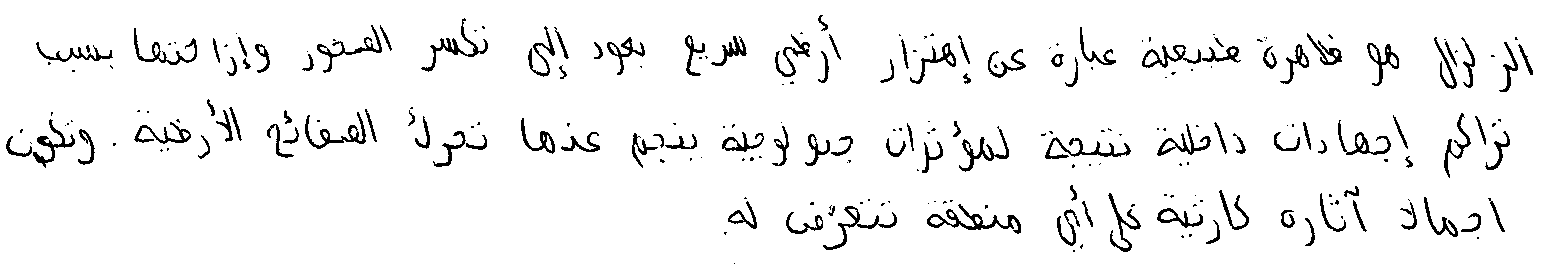 الزلزال هو ظاهرة طبيعية عبارة عن إهتزاز أرضي سريع يعود إلى تكسر الصخور وإزاحتها بسبب
تراكم إجهادات داخلية نتيجة لمؤثرات جيولوجية ينجم عنها تحرك الصفائح الأرضية. وتكون
اجمالا آثاره كارثية على أي منطقة تتعرض له